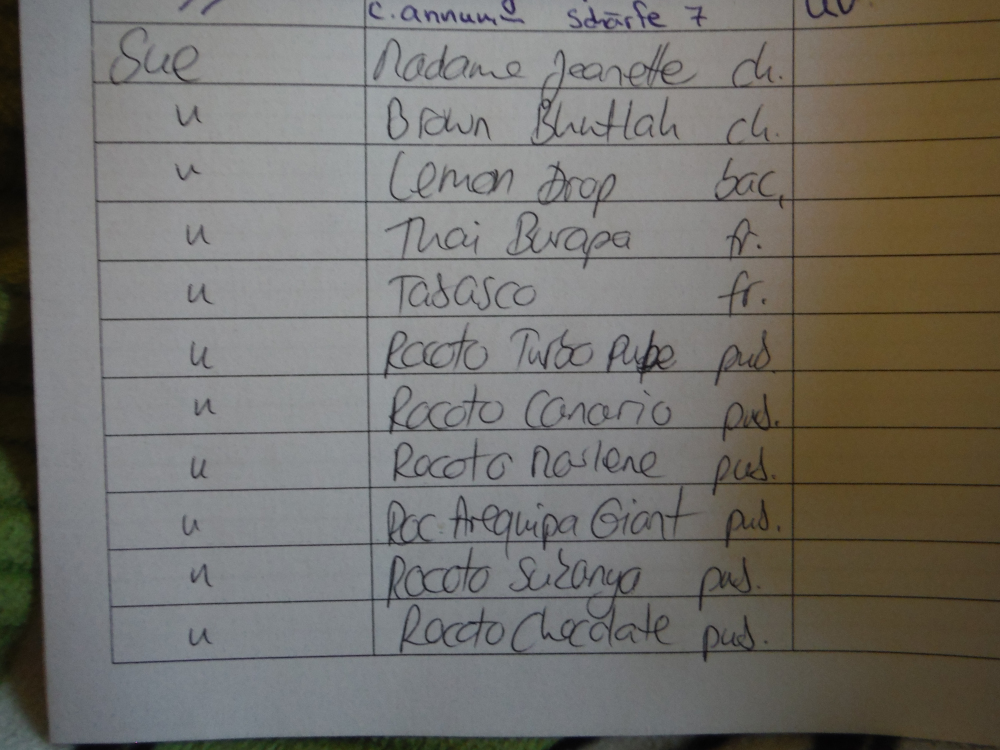 c. annum Schärfe 7
Sue Madame Jeanette ch.
u Brown Bhutlah ch.
u Lemon Drop bac.
u Thai Burapa fr.
u Tabasco fr.
u Rocoto Turbo Pube pub.
u Rocoto Canario pub.
u Rocoto Maslene pub.
u Roc. Arequipa Giant pub.
u Rocoto pub.
u Rocoto Chocolate pub.